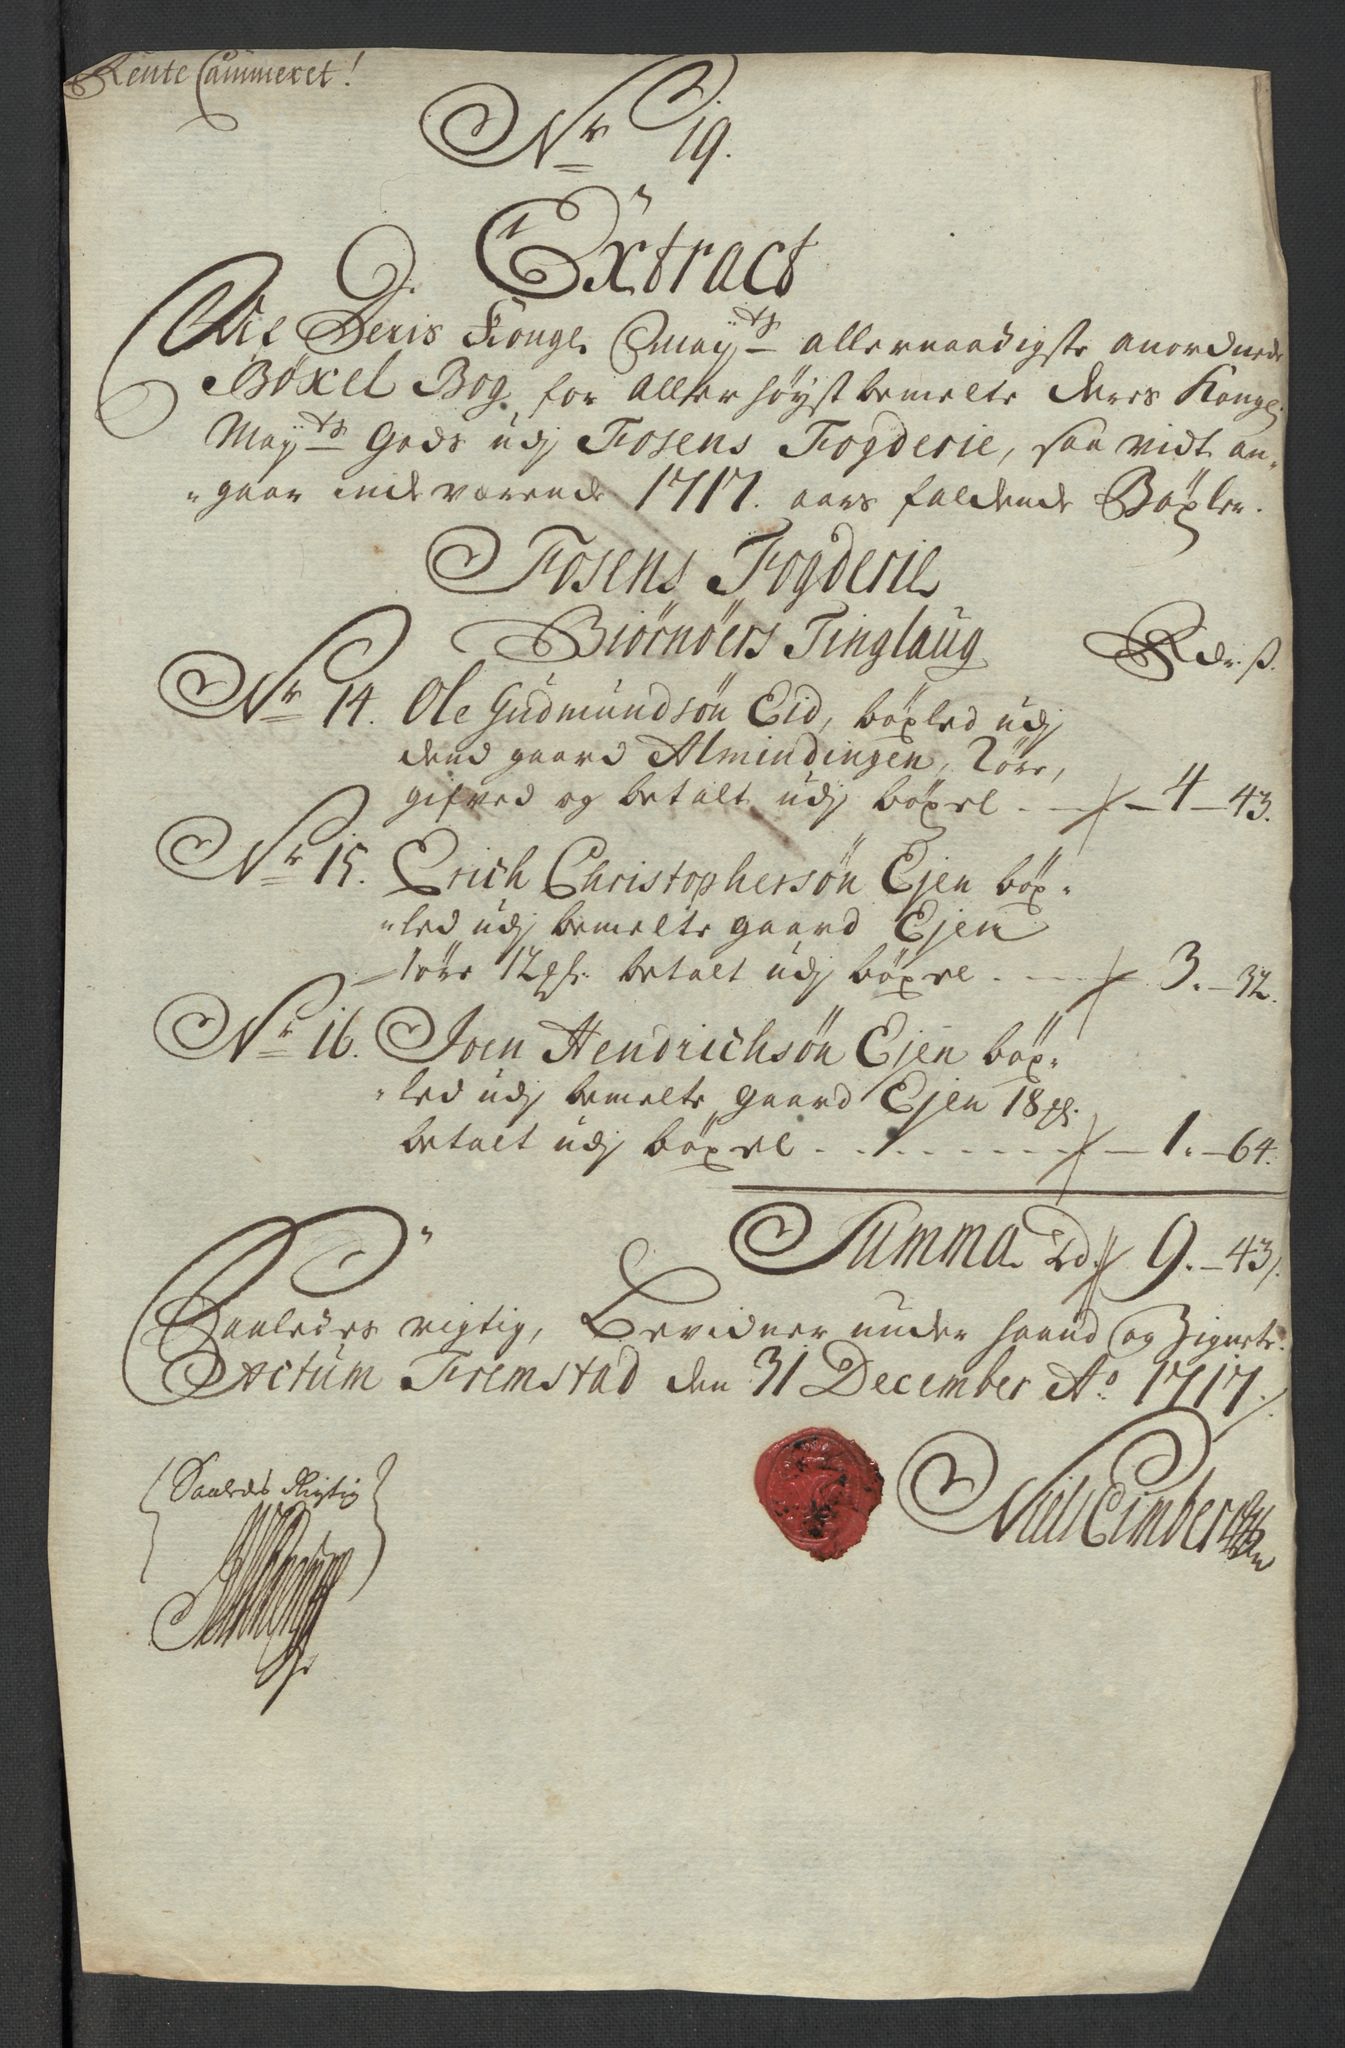 Rente Cammeret!
Nr 19.
Extract
Af Deris Kongl. Mayts allernaadigste anordnede
Bøxel Bog, for aller høystbemelte deres Kongl.
Mayts Gods udj Fosens Fogderie, saa vidt an-
gaar indeværende 1717. aars faldende Böxler.
Fosens Fogderie
Biørnöers Tinglaug Rdr. ß.
Nr 14. Ole Gudmundsön Eid, böxled udj
dend gaard Almindingen, 2 öre,
gifved og betalt udj böxel - 4 - 43.
Nr 15. Erich Christophersön Ejen böx-
led udj bemelte gaard Ejen
1 öre 12 betalt udj böxel - 3. - 32.
Nr 16. Joen Hendrichsön Ejen böx-
led udj bemelte gaard Ejen 18
betalt udj böxel - 1. - 64.
Summa Rd 9. - 43.
Saaledes rigtig, Bevidner under haand og Zignete.
Actum Fremstad den 31 December Ao 1717.
Saaledes Rigtig
Niels Eimberg